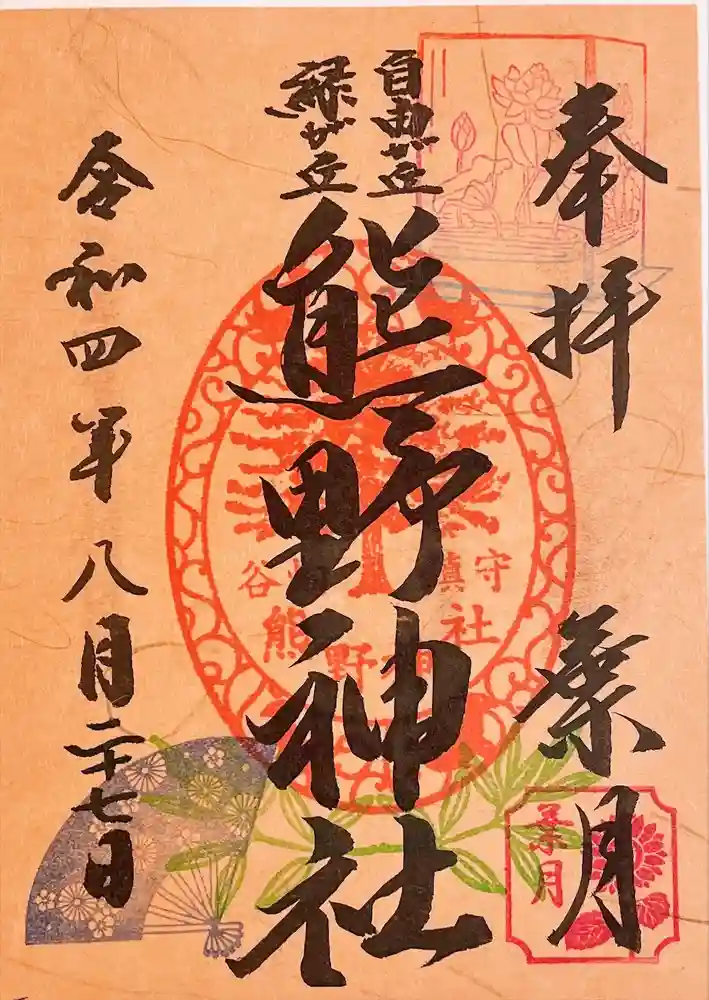 奉拝
葉月
葉月
自由が丘
緑が丘
熊野神社
守
鎮
社
谷
熊野神
令和四年八月二十七日